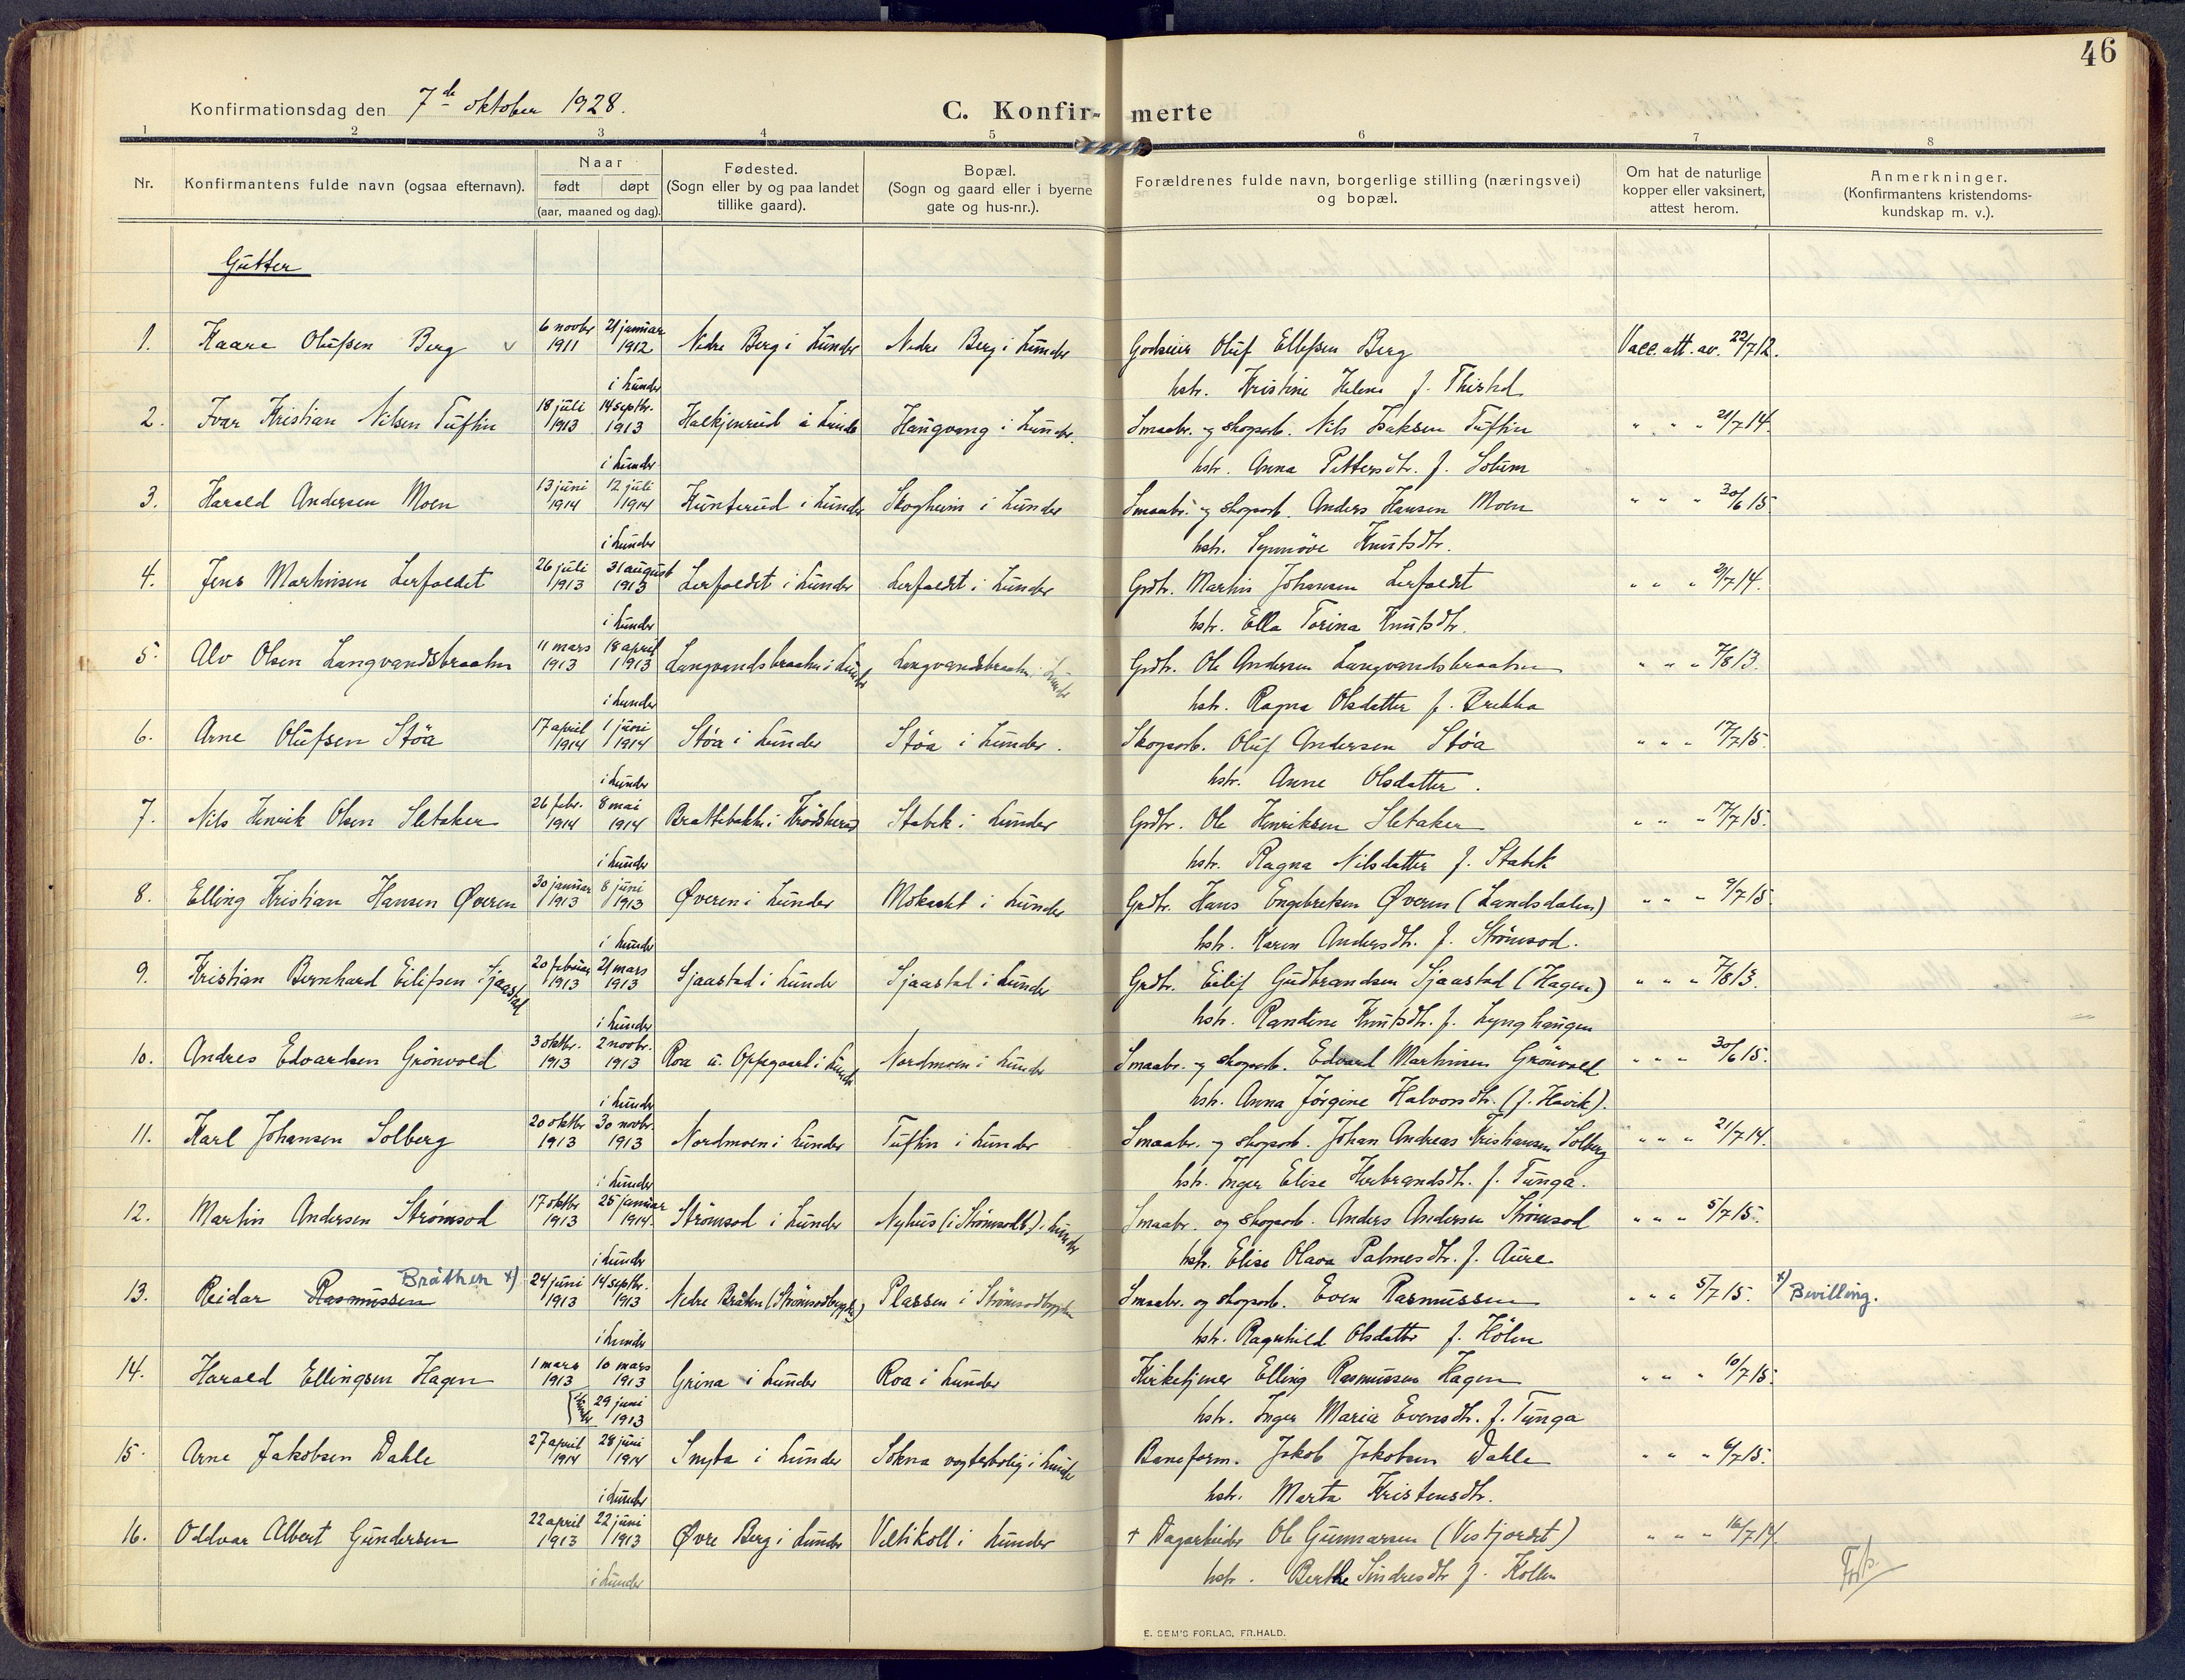 46
Konfirmationsdag den 7de oktober 1928.
C. Konfir- merte
1 2 3 4 5 6 7 8
Nr.
Konfirmantens fulde navn (ogsaa efternavn).
Naar
født døpt
(aar, maaned og dag).
Fødested.
(Sogn eller by og paa landet
tillike gaard).
Bopæl.
(Sogn og gaard eller i byerne
gate og hus-nr.).
Forældrenes fulde navn, borgerlige stilling (næringsvei)
og bopæl.
Om hat de naturlige
kopper eller vaksinert,
attest herom.
Anmerkninger.
(Konfirmantens kristendoms-
kundskap m. v.).
Gutter
1. Kaare Olufsen Berg v 6 novbr 1911 21 januar 1912 Nedre Berg i Lunder Nedre Berg i Lunder Godseier Oluf Ellefsen Berg Vacc. att. av. 22/7 12.
i Lunder hstr. Kristine Helene f. Thirstad
2. Ivar Kristian Nilsen Tuftin 18 juli 1913 14 septbr. 1913 i Lunder Haugvang i Lunder. Smaabr. og skogsarb. Nils Isaksen Tuftin " " " 21/7 14.
i Lunder hstr. Anna Pettersdtr. f. Solum
3. Harald Andersen Moen 13 juni 1914 12 juli 1914 Hunserud i Lunder Skogheim i Lunder Smaabr. og skogsarb. Anders Hansen Moen " " " 30/6 15
i Lunder hstr. Synnöve Knutsdtr.
4. Jens Martinsen Lerfaldet 26 juli 1913 31 august 1913 Lerfaldet i Lunder Lerfaldet i Lunder Grdbr. Martin Johansen Lerfaldet " " " 21/7 14.
i Lunder hstr. Ella Torina Knutsdtr.
5. Alv Olsen Langvandsbraaten 11 mars 1913 18 april 1913 Langvandsbraaten i Lunder Langvandsbraaten i Lunder Grdbr. Ole Andersen Langvandsbraaten " " " 7/8 13.
i Lunder hstr. Ragna Olsdatter f. Brekka
6. Arne Olufsen Støa 17 april 1914 1 juni 1914 Støa i Lunder Støa i Lunder. Skogsarb. Oluf Andersen Støa " " " 17/7 15.
i Lunder hstr. Anne Olsdatter.
7. Nils Henrik Olsen Sletaker 26 febr. 1914 8 mai 1914 Brattebakk i Krødsherad Stabek i Lunder Grdbr. Ole Henriksen Sletaker " " " 17/7 15.
i Lunder hstr. Ragna Nilsdatter f. Stabek
8. Elling Kristian Hansen Øveren 30 januar 1913 8 juni 1913 Øveren i Lunder i Lunder Grdbr. Hans Engebretsen Øveren (Landsdalen) " " " 9/7 15.
i Lunder hstr. Karen Andersdtr. f. Strømsod.
9. Kristian Bernhard Eilifsen Sjaastad 20 februar 1913 21 mars 1913 Sjaastad i Lunder Sjaastad i Lunder Grdbr. Eilif Gudbrandsen Sjaastad (Hagen) " " " 7/8 13.
i Lunder hstr. Randine Knutsdtr. f. Lynghaugen
10. Andres Edvardsen Grönvold 3 oktbr. 1913 2 novbr. 1913 Roa u. Oppegaard i Lunder Nordmoen i Lunder Smaabr. og skogsarb. Edvard Martinsen Grönvold " " " 30/6 15.
i Lunder hstr. Anna Jörgine Halvorsdtr. (f. Havik).
11. Karl Johansen Solberg 20 oktbr 1913 30 novbr. 1913 Nordmoen i Lunder Tuftin i Lunder Smaabr. og skogsarb. Johan Andreas Kristiansen Solberg " " " 21/7 14.
i Lunder hstr. Inger Elise Herbrandsdtr. f. Tunga.
12. Martin Andersen Strømsod 17 oktbr 1913 25 januar 1914. Strømsod i Lunder Nyhus (i Strømsodb.) i Lunder Smaabr. og skogsarb. Anders Andersen Strømsod " " " 5/7 15.
i Lunder hstr. Elise Olava Palmesdtr. f. Aure
13. Reidar Rasmussen Bråthen x) 24 juni 1913 14 septbr. 1913 Nedre Bråten (Strømsodbygda) Plassen i Strømsodbygda Smaabr. og skogsarb. Even Rasmussen " " " 5/7 15. x) Bevilling.
i Lunder hstr. Ragnhild Olsdatter f. Hölen
14. Harald Ellingsen Hagen 1 mars 1913 10 mars 1913 Grina i Lunder Roa i Lunder Kirketjener Elling Rasmussen Hagen " " " 10/7 15.
i Lunder 29 juni 1913 hstr. Inger Marie Evensdtr. f. Tunga
15. Arne Jakobsen Dahle 27 april 1914 28 juni 1914 Smyta i Lunder Sokna vogterbolig i Lunder Baneform. Jakob Jakobsen Dahle " " " 6/7 15.
i Lunder hstr. Marta Kristensdtr.
16. Oddvar Albert Gundersen 22 april 1913 22 juni 1913 Øvre Berg i Lunder Veltikoll i Lunder + Dagarbeider Ole Gunnarsen (Vestfjordet) " " " 16/7 14.
i Lunder hstr. Berthe Sindresdtr f. Kollen
E. SEM'S FORLAG, FR.HALD.